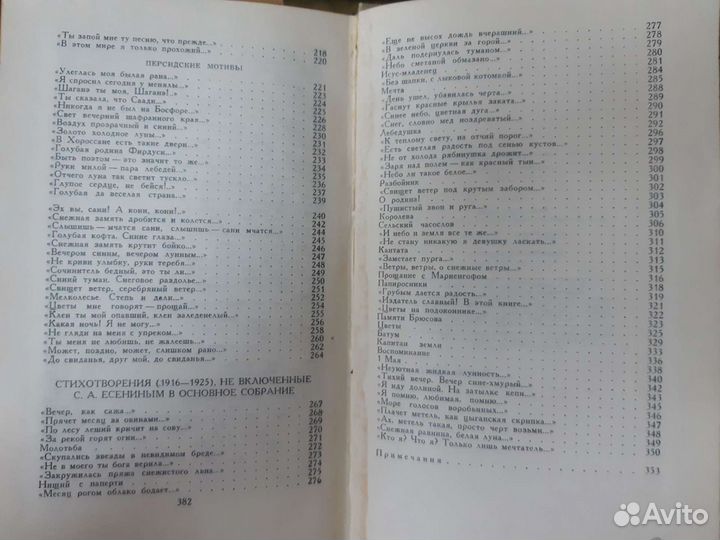 «Ты запой мне ту песню, что прежде...» 218
«В этом мире я только прохожий...» 220
ПЕРСИДСКИЕ МОТИВЫ
«Улеглась моя былая рана...» 221
«Я спросил сегодня у менялы...» 223
«Шаганэ ты моя, Шаганэ!..» 224
«Ты сказала, что Саади...» 225
«Никогда я не был на Босфоре...» 226
«Свет вечерний шафранного края...» 228
«Воздух прозрачный и синий...» 230
«Золото холодное луны...» 231
«В Хороссане есть такие двери...» 232
«Голубая родина Фирдуси...» 233
«Быть поэтом — это значит то же...» 234
«Руки милой — пара лебедей...» 235
«Отчего луна так светит тускло...» 236
«Глупое сердце, не бейся!..» 237
«Голубая да веселая страна...» 239
«Эх вы, сани! А кони, кони!..» 240
«Снежная замять дробится и колется...» 242
«Слышишь — мчатся сани, слышишь — сани мчатся...» 243
«Голубая кофта. Синие глаза...» 244
«Снежная замять крутит бойко...» 245
«Вечером синим, вечером лунным...» 246
«Не криви улыбку, руки теребя...» 247
«Сочинитель бедный, это ты ли...» 249
«Синий туман. Снеговое раздолье...» 250
«Свищет ветер, серебряный ветер...» 251
«Мелколесье. Степь и дали...» 252
«Цветы мне говорят — прощай...» 254
«Клен ты мой опавший, клен заледенелый...» 255
«Какая ночь! Я не могу...» 256
«Не гляди на меня с упреком...» 258
«Ты меня не любишь, не жалеешь...» 260
«Может, поздно, может, слишком рано...» 262
«До свиданья, друг мой, до свиданья...» 264
СТИХОТВОРЕНИЯ (1916—1925), НЕ ВКЛЮЧЕННЫЕ
С. А. ЕСЕНИНЫМ В ОСНОВНОЕ СОБРАНИЕ
«Вечер, как сажа...» 267
«Прячет месяц за овинами...» 268
«По лесу леший кричит на сову...» 269
«За рекой горят огни...» 270
Молотьба 271
«Скупались звезды в невидимом бреде...» 272
«Не в моего ты бога верила...» 273
«Закружилась пряжа снежистого льна...» 274
Нищий с паперти 275
«Месяц рогом облако бодает...» 276
382
«Еще не высох дождь вчерашний...» 277
«В зеленой церкви за горой...» 278
«Даль подернулась туманом...» 279
«Небо сметаной обмазано...» 280
Исус-младенец 281
«Без шапки, с лыковой котомкой...» 284
Мечта 285
«День ушел, убавилась черта...» 288
«Гаснут красные крылья заката...» 289
«Синее небо, цветная дуга...» 290
«Снег, словно мед ноздреватый...» 291
Лебедушка 292
«К теплому свету, на отчий порог...» 296
«Есть светлая радость под сенью кустов...» 297
«Не от холода рябинушка дрожит...» 298
«Заря над полем — как красный тын...» 299
«Небо ли такое белое...» 300
Разбойник 301
«Свищет ветер под крутым забором...» 302
О родина! 303
«Пушистый звон и руга...» 304
Королева 305
Сельский часослов 306
«И небо и земля все те же...» 310
«Не стану никакую я девушку ласкать...» 311
Кантата 312
«Заметает пурга...»
«Ветры, ветры, о снежные ветры...»
Прощание с Мариенгофом
Папиросники
«Грубым дается радость...»
«Издатель славный! В этой книге...»
«Цветы на подоконнике...»
Памяти Брюсова
Цветы
Батум
Капитан земли
Воспоминание
1 Мая
«Неуютная жидкая лунность...»
«Тихий ветер. Вечер сине-хмурый...»
«Я иду долиной. На затылке кепи...»
«Я помню, любимая, помню...»
«Море голосов воробьиных...»
«Плачет метель, как цыганская скрипка...»
«Ах, метель такая, просто черт возьми...»
«Снежная равнина, белая луна...» 349
«Кто я? Что я? Только лишь мечтатель...» 350
Примечания 353
Avito